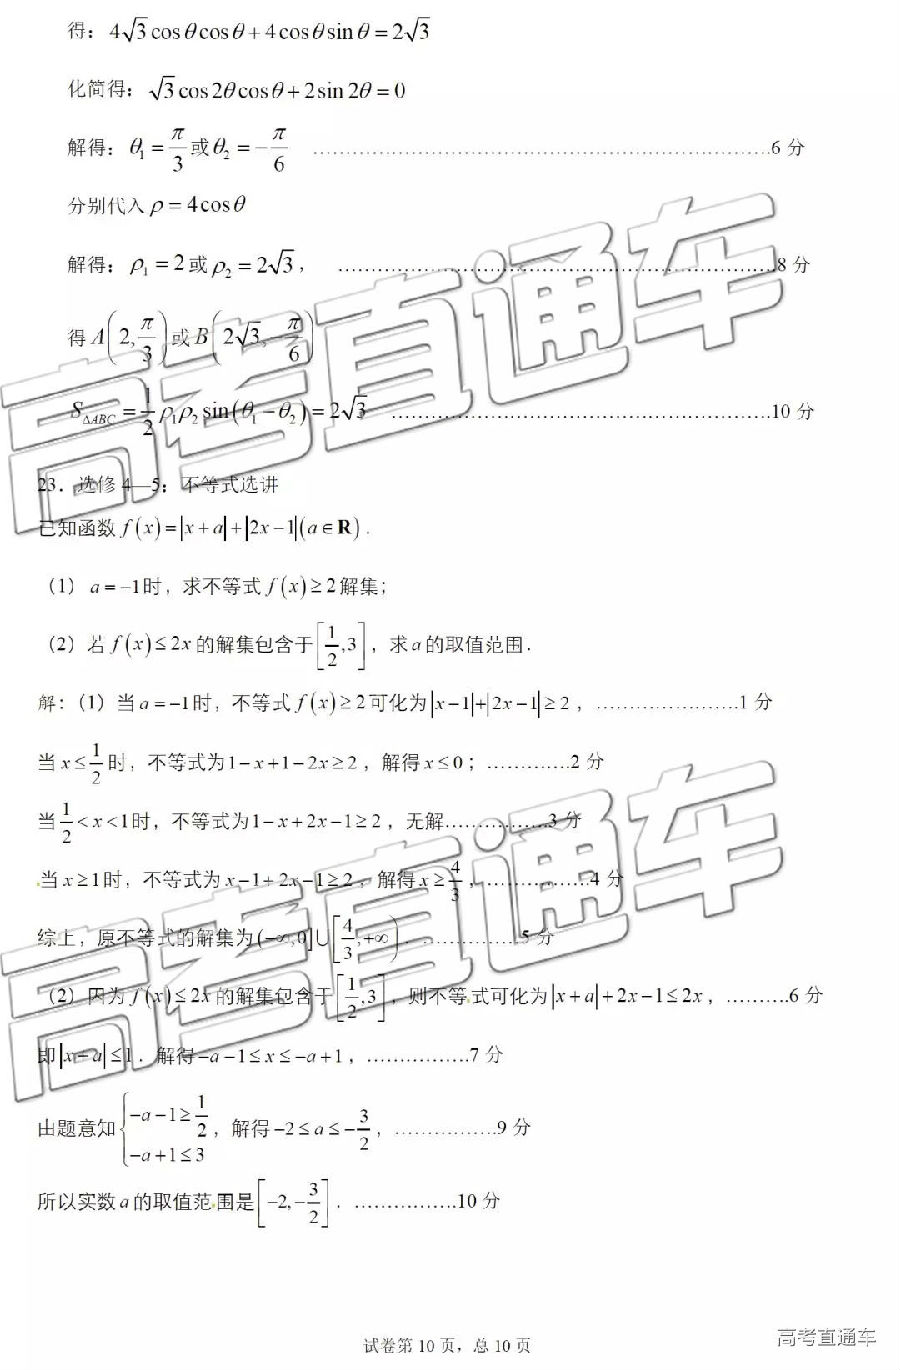 得：4√3cosθcosθ+4cosθsinθ=2√3
化简得：√3cos2θcosθ+2sin2θ=0
解得：θ₁=π/3或θ₂=-π/6 ……………6分
分别代入ρ=4cosθ
解得：ρ₁=2或ρ₂=2√3， ……………8分
得A(2,π/3)或B(2√3,-π/6)
S△ABC=1/2ρ₁ρ₂sin(θ₁-θ₂)=2√3 ……………10分
23．选修4—5：不等式选讲
已知函数f(x)=|x+a|+|2x-1|(a∈R)．
（1）a=-1时，求不等式f(x)≥2解集；
（2）若f(x)≤2x的解集包含于[1/2,3]，求a的取值范围．
解：（1）当a=-1时，不等式f(x)≥2可化为|x-1|+|2x-1|≥2，……………1分
当x≤1/2时，不等式为1-x+1-2x≥2，解得x≤0；……………2分
当1/2<x<1时，不等式为1-x+2x-1≥2，无解……………3分
当x≥1时，不等式为x-1+2x-1≥2，解得x≥4/3，……………4分
综上，原不等式的解集为(-∞,0]∪[4/3,+∞)．……………5分
（2）因为f(x)≤2x的解集包含于[1/2,3]，则不等式可化为|x+a|+2x-1≤2x，………6分
即|x+a|≤1．解得-a-1≤x≤-a+1，……………7分
由题意知{-a-1≥1/2 -a+1≤3，解得-2≤a≤-3/2，……………9分
所以实数a的取值范围是[-2,-3/2]．……………10分
试卷第10页，总10页
高考直通车
高考直通车
高考直通车